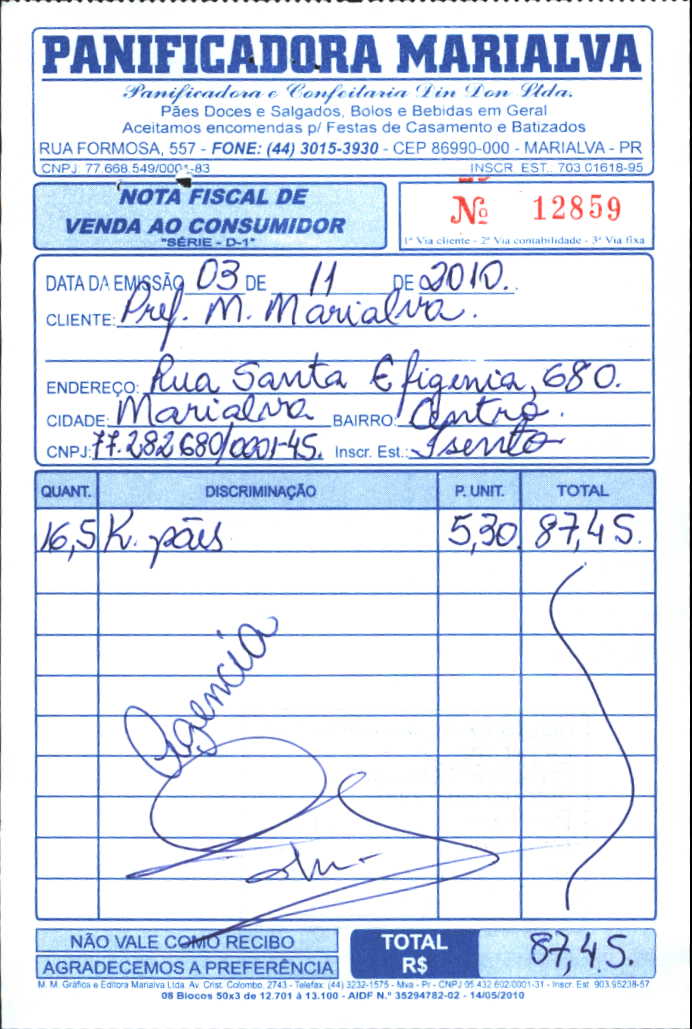 PANIFICADORA MARIALVA
Panificadora e Confeitaria Din Don Ltda.
Pães Doces e Salgados, Bolos e Bebidas em Geral
Aceitamos encomendas p/ Festas de Casamento e Batizados
RUA FORMOSA, 557 - FONE: (44) 3015-3930 - CEP 86990-000 - MARIALVA - PR
CNPJ. 77.668.549/0001-83 INSCR. EST.: 703.01618-95
NOTA FISCAL DE
VENDA AO CONSUMIDOR
"SÉRIE - D-1"
Nº 12859
1ª Via cliente - 2ª Via contabilidade - 3ª Via fixa
DATA DA EMISSÃO 03 DE 11 DE 2010.
CLIENTE: Pref. M. Marialva.
ENDEREÇO: Rua Santa Efigenia, 680.
CIDADE: Marialva BAIRRO: Centro.
CNPJ: 77.282680/0001-45. Inscr. Est.: Isento
QUANT. DISCRIMINAÇÃO P. UNIT. TOTAL
16,5 K. pães 5,30 87,45.
Agencia
NÃO VALE COMO RECIBO
AGRADECEMOS A PREFERÊNCIA
TOTAL R$ 87,45.
M. M. Gráfica e Editora Marialva Ltda. Av. Crist. Colombo, 2743 - Telefax: (44) 3232-1575 - Mva - Pr - CNPJ 05.432.602/0001-31 - Inscr. Est. 903.95238-57
08 Blocos 50x3 de 12.701 à 13.100 - AIDF N.º 35294782-02 - 14/05/2010